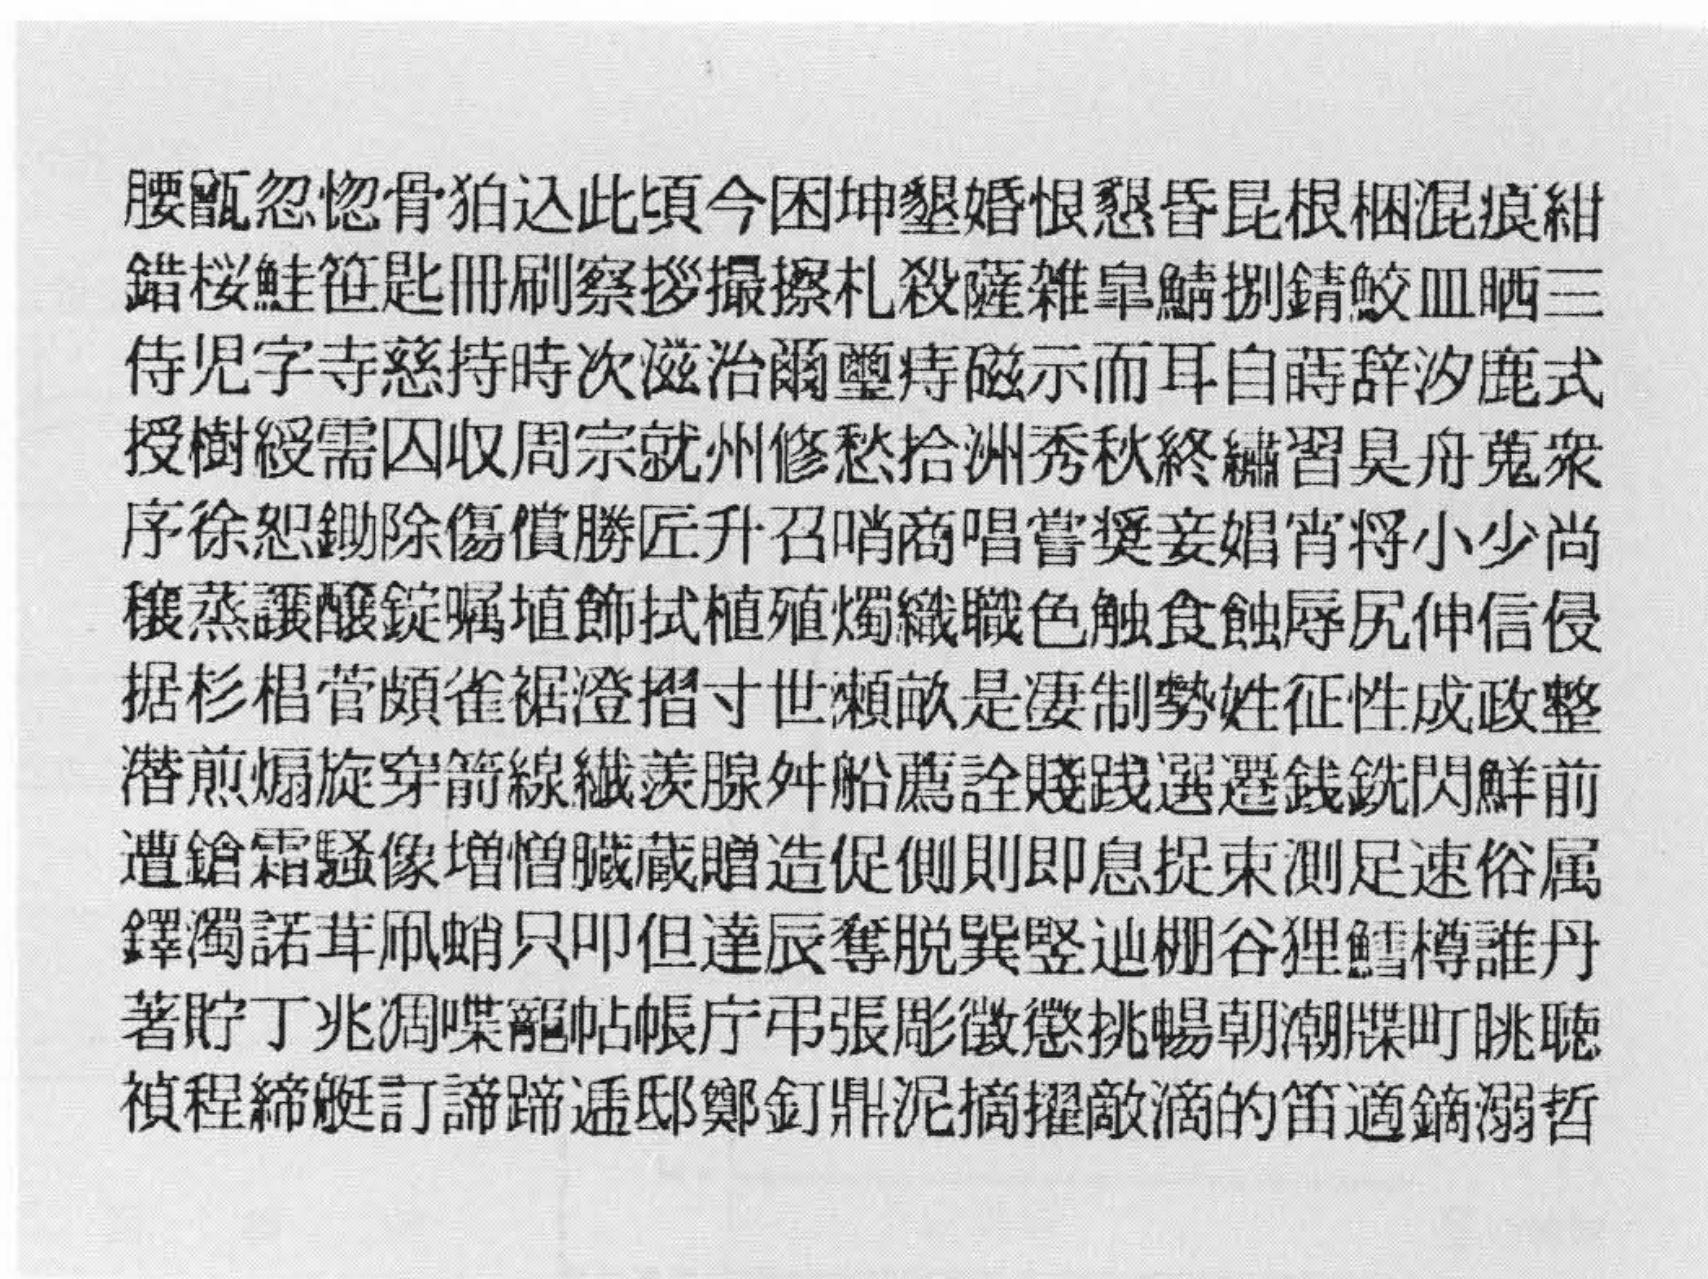 腰甑忽惚骨狛込此頃今困坤墾婚恨懇昏昆根梱混痕紺
錯桜鮭笹匙冊刷察拶撮擦札殺薩雑皐鯖捌錆鮫皿晒三
侍児字寺慈持時次滋治爾璽痔磁示而耳自蒔辞汐鹿式
授樹綬需囚収周宗就州修愁拾洲秀秋終繍習臭舟蒐衆
序徐恕鋤除傷償勝匠升召哨商唱嘗奨妾娼宵将小少尚
穣蒸譲醸錠嘱埴飾拭植殖燭織職色触食蝕辱尻伸信侵
据杉椙菅頗雀裾澄摺寸世瀬畝是凄制勢姓征性成政整
潜煎煽旋穿箭線繊羨腺舛船薦詮賤践選遷銭銑閃鮮前
遭鎗霜騒像増憎臓蔵贈造促側則即息捉束測足速俗属
鐸濁諾茸凧蛸只叩但達辰奪脱巽竪辿棚谷狸鱈樽誰丹
著貯丁兆凋喋寵帖帳庁弔張彫徴懲挑暢朝潮牒町眺聴
禎程締艇訂諦蹄逓邸鄭釘鼎泥摘擢敵滴的笛適鏑溺哲